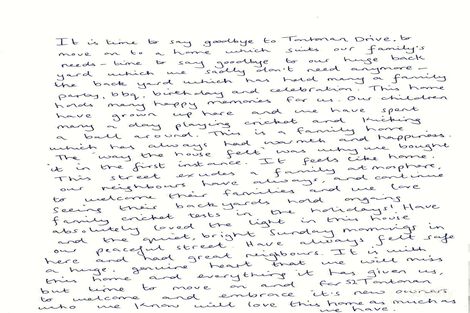 It is time to say goodbye to Tontonan Drive, to
move on to a home which suits our family's
needs - time to say goodbye to our huge back
yard which we sadly don't need anymore -
the back yard which has held many a family
party, bbq, birthday and celebration. This home
holds many happy memories for us. Our children
have grown up here and we have spent
many a day playing cricket and kicking
a ball around. This is a family home
which has always had warmth and happiness.
The way the house felt was why we bought
it in the first instance. It feels like home.
This street exudes a family atmosphere,
our neighbours have always and continue
to welcome their families and we love
seeing their backyards hold
family cricket tests in the holidays! Have
absolutely loved the light in this house
and the quiet, bright Sunday mornings in
our peaceful street. Have always felt safe
here and had great neigbours. It is with
a huge, genuine heart that we will miss
this home and everything it has given us,
but time to move on and for 52 Tontonan
to welcome and embrace it's new owners
who we know will love this home as much as
we have.